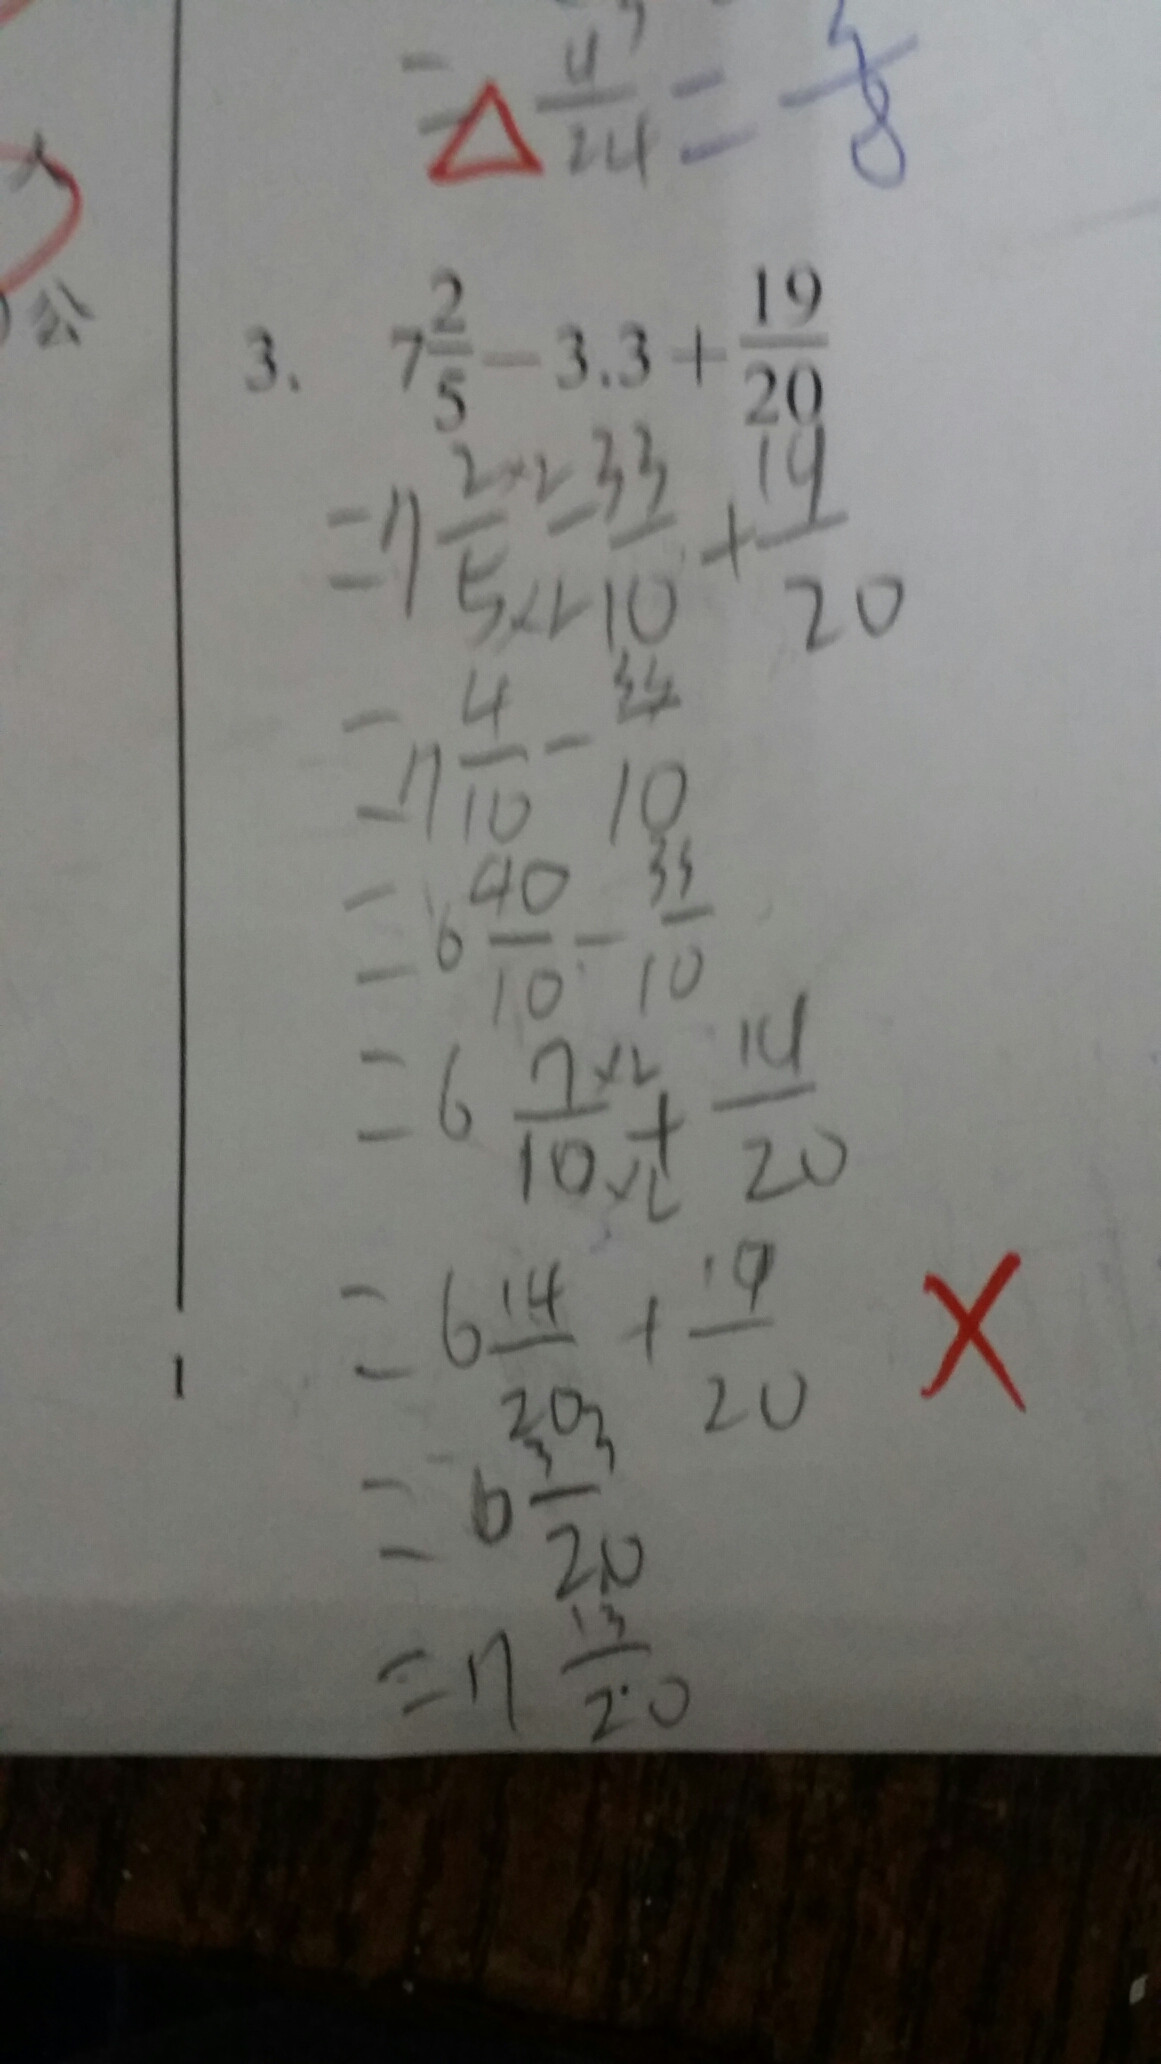 = 4/24 = /8
公
3. 7 2/5 - 3.3 + 19/20
= 7 2×2/5×2 - 33/10 + 19/20
= 7 4/10 - 33/10
= 6 40/10 - 33/10
= 6 7×2/10×2 + 19/20
= 6 14/20 + 19/20
= 6 33/20
= 7 13/20